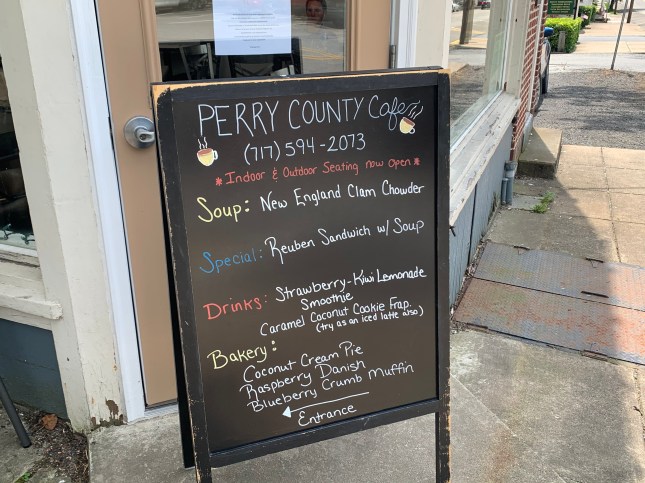 PERRY COUNTY Cafe
(717) 594-2073
* Indoor & Outdoor Seating now open *
Soup: New England Clam Chowder
Special: Reuben Sandwich w/ Soup
Drinks: Strawberry-Kiwi Lemonade
Smoothie
Caramel Coconut Cookie Frap.
(try as an iced latte also)
Bakery:
Coconut Cream Pie
Raspberry Danish
Blueberry Crumb Muffin
Entrance